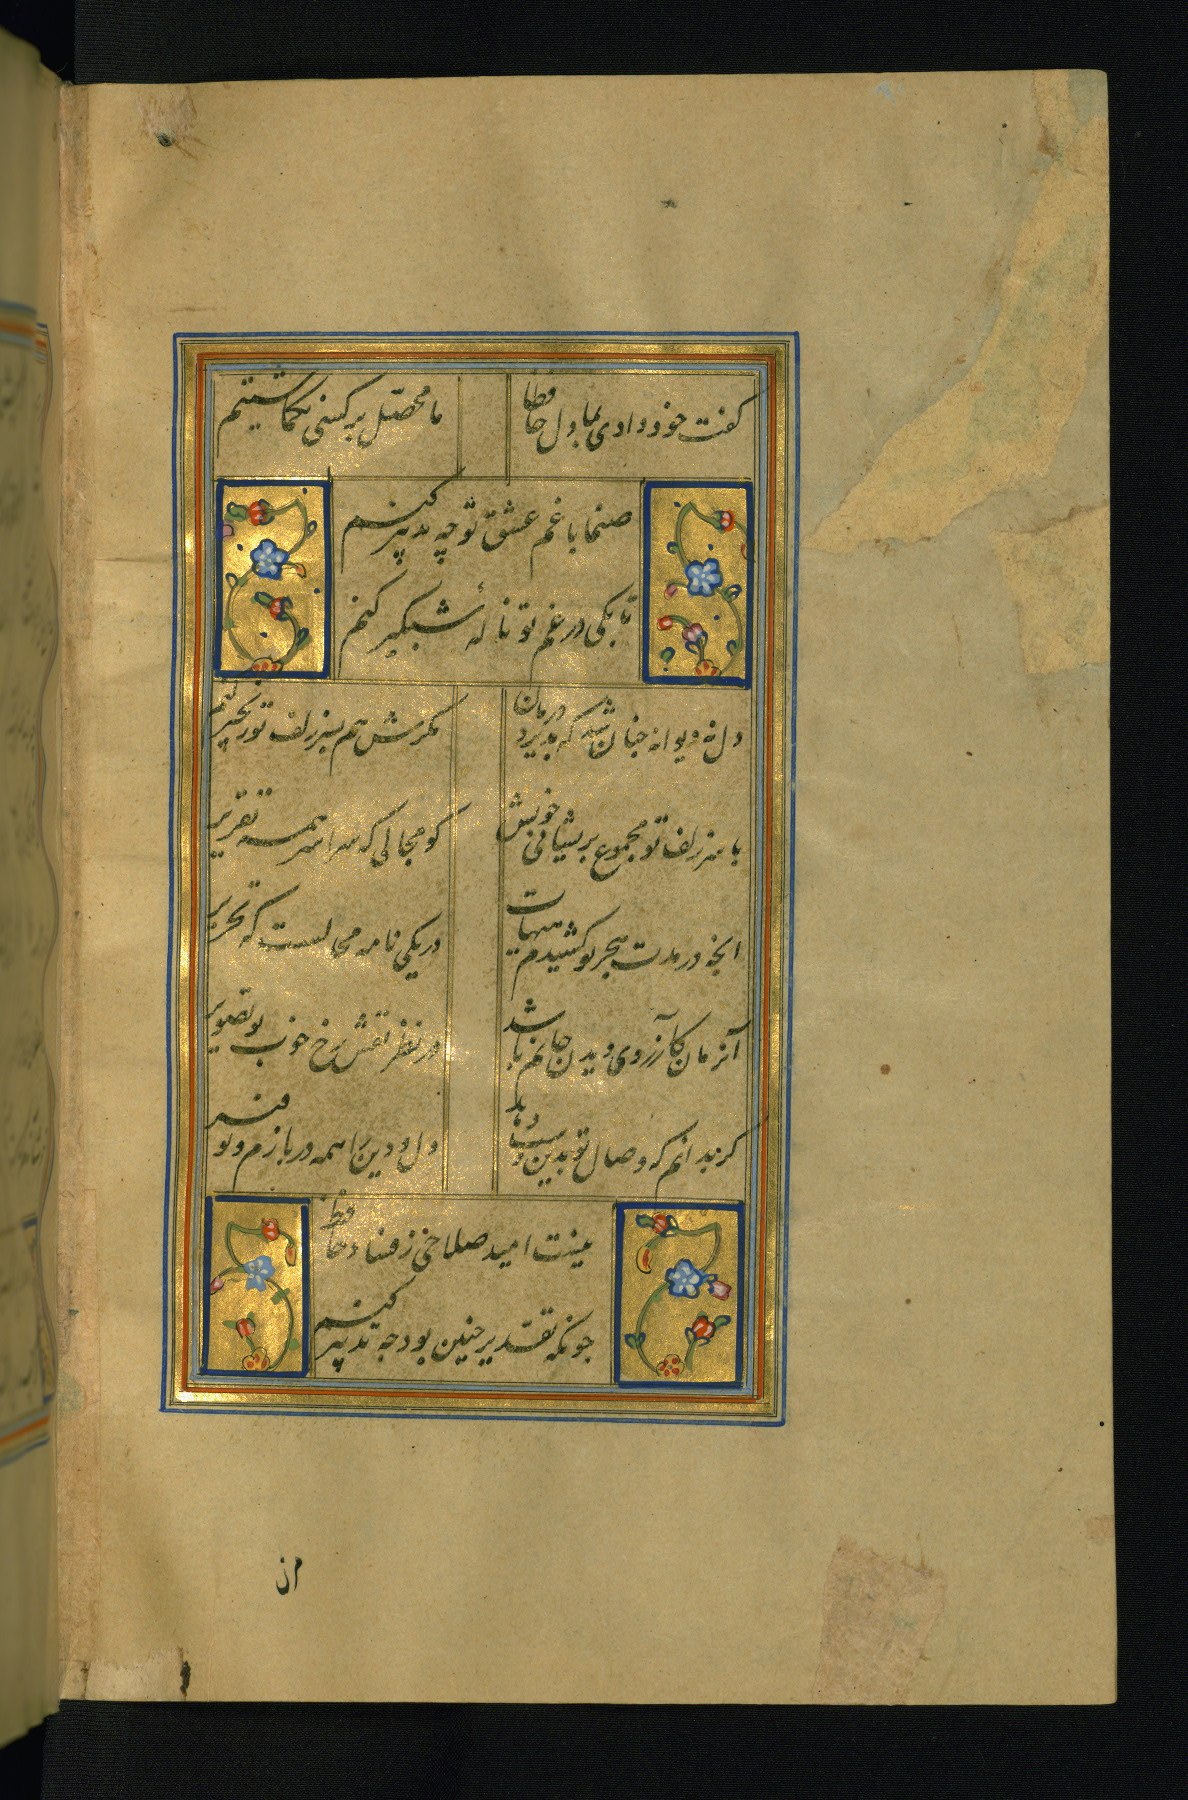 گفت خود دادی بما دل حافظا
ما محصل بر کسی نگماشتیم
صنما با غم عشق تو چه تدبیر کنم
تا بکی در غم تو نالهٔ شبگیر کنم
دل دیوانه چنان شد که پذیرد درمان
مکرش هم بسر زلف تو زنجیر کنم
با سر زلف تو مجموع پریشانی خویش
کو مجالی که سراسر همه تقریر
آنچه در مدت هجر تو کشیدم هیهات
در یکی نامه محالست که تحریر
آنزمان کآرزوی دیدن جانم باشد
در نظر نقش رخ خوب تو تصویر
گر بدانم که وصال تو بدین دست دهد
دل و دین را همه دربازم و توفیر
نیست امید صلاحی ز فساد حافظ
چونکه تقدیر چنین بود چه تدبیر کنم